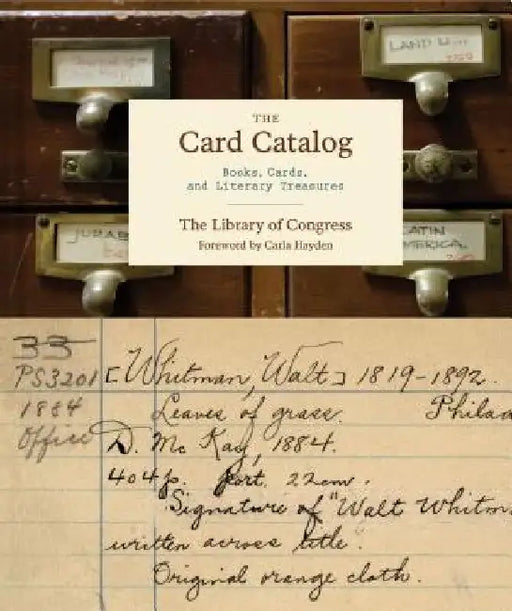 LAND
THE
Card Catalog
Books, Cards,
and Literary Treasures
The Library of Congress
Foreword by Carla Hayden
LATIN
AMERICA.
33
PS3201 [Whitman, Walt] 1819-1892.
1884 Leaves of grass. Philad
Office D. Mc Kay, 1884.
404p. port. 22cm.
Signature of "Walt Whitm
written across title".
Original orange cloth.